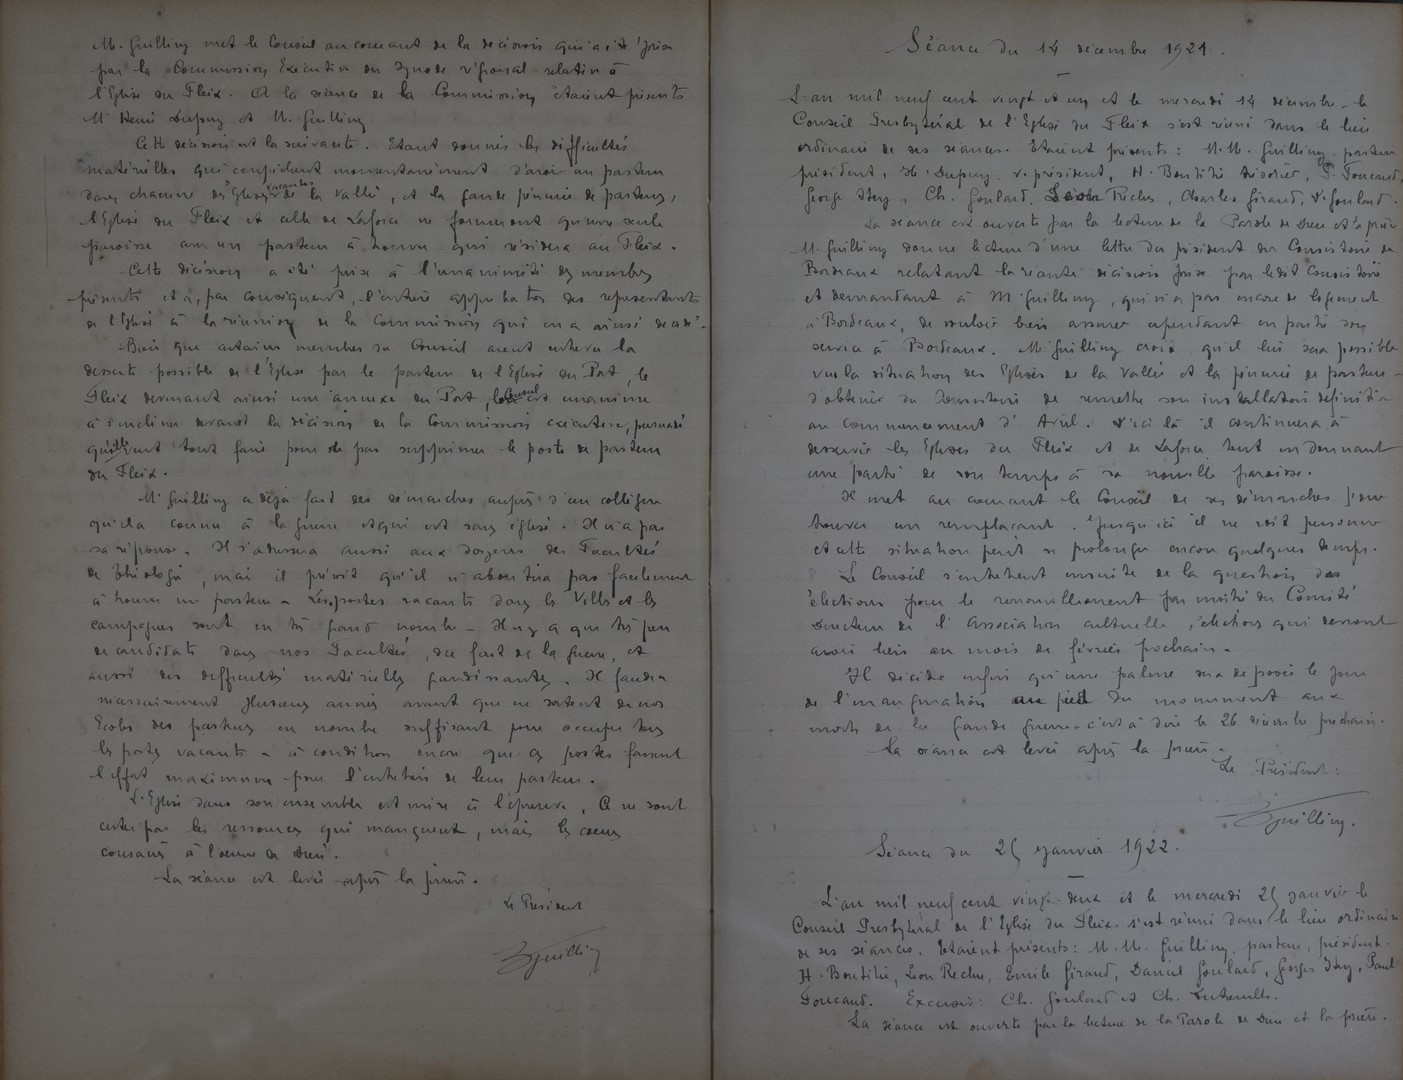 M. Guilling met le Conseil au courant de la décision qui a été prise
par la Commission Exécutive du Synode régional relative à
l'Eglise du Fleix. A la séance de la Commission étaient présents
M. Henri Dupuy et M. Guilling
Cette décision est la suivante. Etant données les difficultés
matérielles qui empêchent momentanément d'avoir un pasteur
dans chacune des Eglises vacantes de la Vallée, et la grande pénurie de pasteurs,
l'Eglise du Fleix et celle de Laforce ne formeront qu'une seule
paroisse avec un pasteur à trouver qui résidera au Fleix.
Cette décision a été prise à l'unanimité des membres
présents et a, par conséquent, l'entière approbation des représentants
de l'Eglise à la réunion de la Commission qui en a ainsi décidé.
Bien que certains membres du Conseil aient entrevu la
desserte possible de l'Eglise par le pasteur de l'Eglise du Port, le
Fleix devenant ainsi une annexe du Port, le Conseil est unanime
à s'incliner devant la décision de la Commission exécutive, persuadé
qu'elle veut tout faire pour ne pas supprimer le poste de pasteur
du Fleix.
M. Guilling a déjà fait des démarches auprès d'un collègue
qu'il a connu à la guerre et qui est sans église. Il n'a pas
sa réponse. Il s'adressera aussi aux doyens des Facultés
de théologie, mais il prévoit qu'il n'aboutira pas facilement
à trouver un pasteur - Les postes vacants dans les Villes et les
campagnes sont en très grand nombre - Il n'y a que très peu
de candidats dans nos Facultés, du fait de la guerre, et
aussi des difficultés matérielles grandissantes. Il faudra
nécessairement plusieurs années avant que ne sortent de nos
Ecoles des pasteurs en nombre suffisant pour occuper tous
les postes vacants - à condition encore que ces postes fassent
l'effort maximum pour l'entretien de leur pasteur.
L'Eglise dans son ensemble est mise à l'épreuve. Ce ne sont
certes pas les ressources qui manquent, mais les coeurs
consacrés à l'oeuvre de Dieu.
La séance est levée après la prière.
Le Président
Guilling
Séance du 14 décembre 1921.
L'an mil neuf cent vingt et un et le mercredi 14 décembre le
Conseil Presbytéral de l'Eglise du Fleix s'est réuni dans le lieu
ordinaire de ses séances. Etaient présents: M.M. Guilling, pasteur
président, H. Dupuy v. président, H. Boutitié trésorier, P. Foucaud,
George Itey, Ch. Goulard, Léon Reclus, Charles Giraud, D. Goulard.
La séance est ouverte par la lecture de la Parole de Dieu et la prière
M. Guilling donne lecture d'une lettre du président du Consistoire de
Bordeaux relatant la récente décision prise par ledit Consistoire
et demandant à M. Guilling, qui n'a pas encore de logement
à Bordeaux, de vouloir bien assurer cependant en partie son
service à Bordeaux. M. Guilling croit qu'il lui sera possible
vu la situation des Eglises de la Vallée et la pénurie de pasteurs
d'obtenir du Consistoire de remettre son installation définitive
au commencement d'Avril. D'ici là il continuera à
desservir les Eglises du Fleix et de Laforce tout en donnant
une partie de son temps à sa nouvelle paroisse.
Il met au courant le Conseil de ses démarches pour
trouver un remplaçant. Jusqu'ici il ne voit personne
et cette situation peut se prolonger encore quelques temps.
Le Conseil s'entretient ensuite de la question des
élections pour le renouvellement par moitié du Comité
Directeur de l'Association cultuelle, élections qui devront
avoir lieu au mois de février prochain.
Il décide enfin qu'une palme sera déposée le jour
de l'inauguration au pied du monument aux
morts de la grande guerre c'est à dire le 26 décembre prochain.
La séance est levée après la prière.
Le Président:
Guilling.
Séance du 25 Janvier 1922.
L'an mil neuf cent vingt deux et le mercredi 25 janvier le
Conseil Presbytéral de l'Eglise du Fleix s'est réuni dans le lieu ordinaire
de ses séances. Etaient présents: M.M. Guilling, pasteur, président.
H. Boutitié, Léon Reclus, Emile Giraud, Daniel Goulard, Georges Itey, Paul
Foucaud. Excusés: Ch. Goulard et Ch.
La séance est ouverte par la lecture de la Parole de Dieu et la prière.